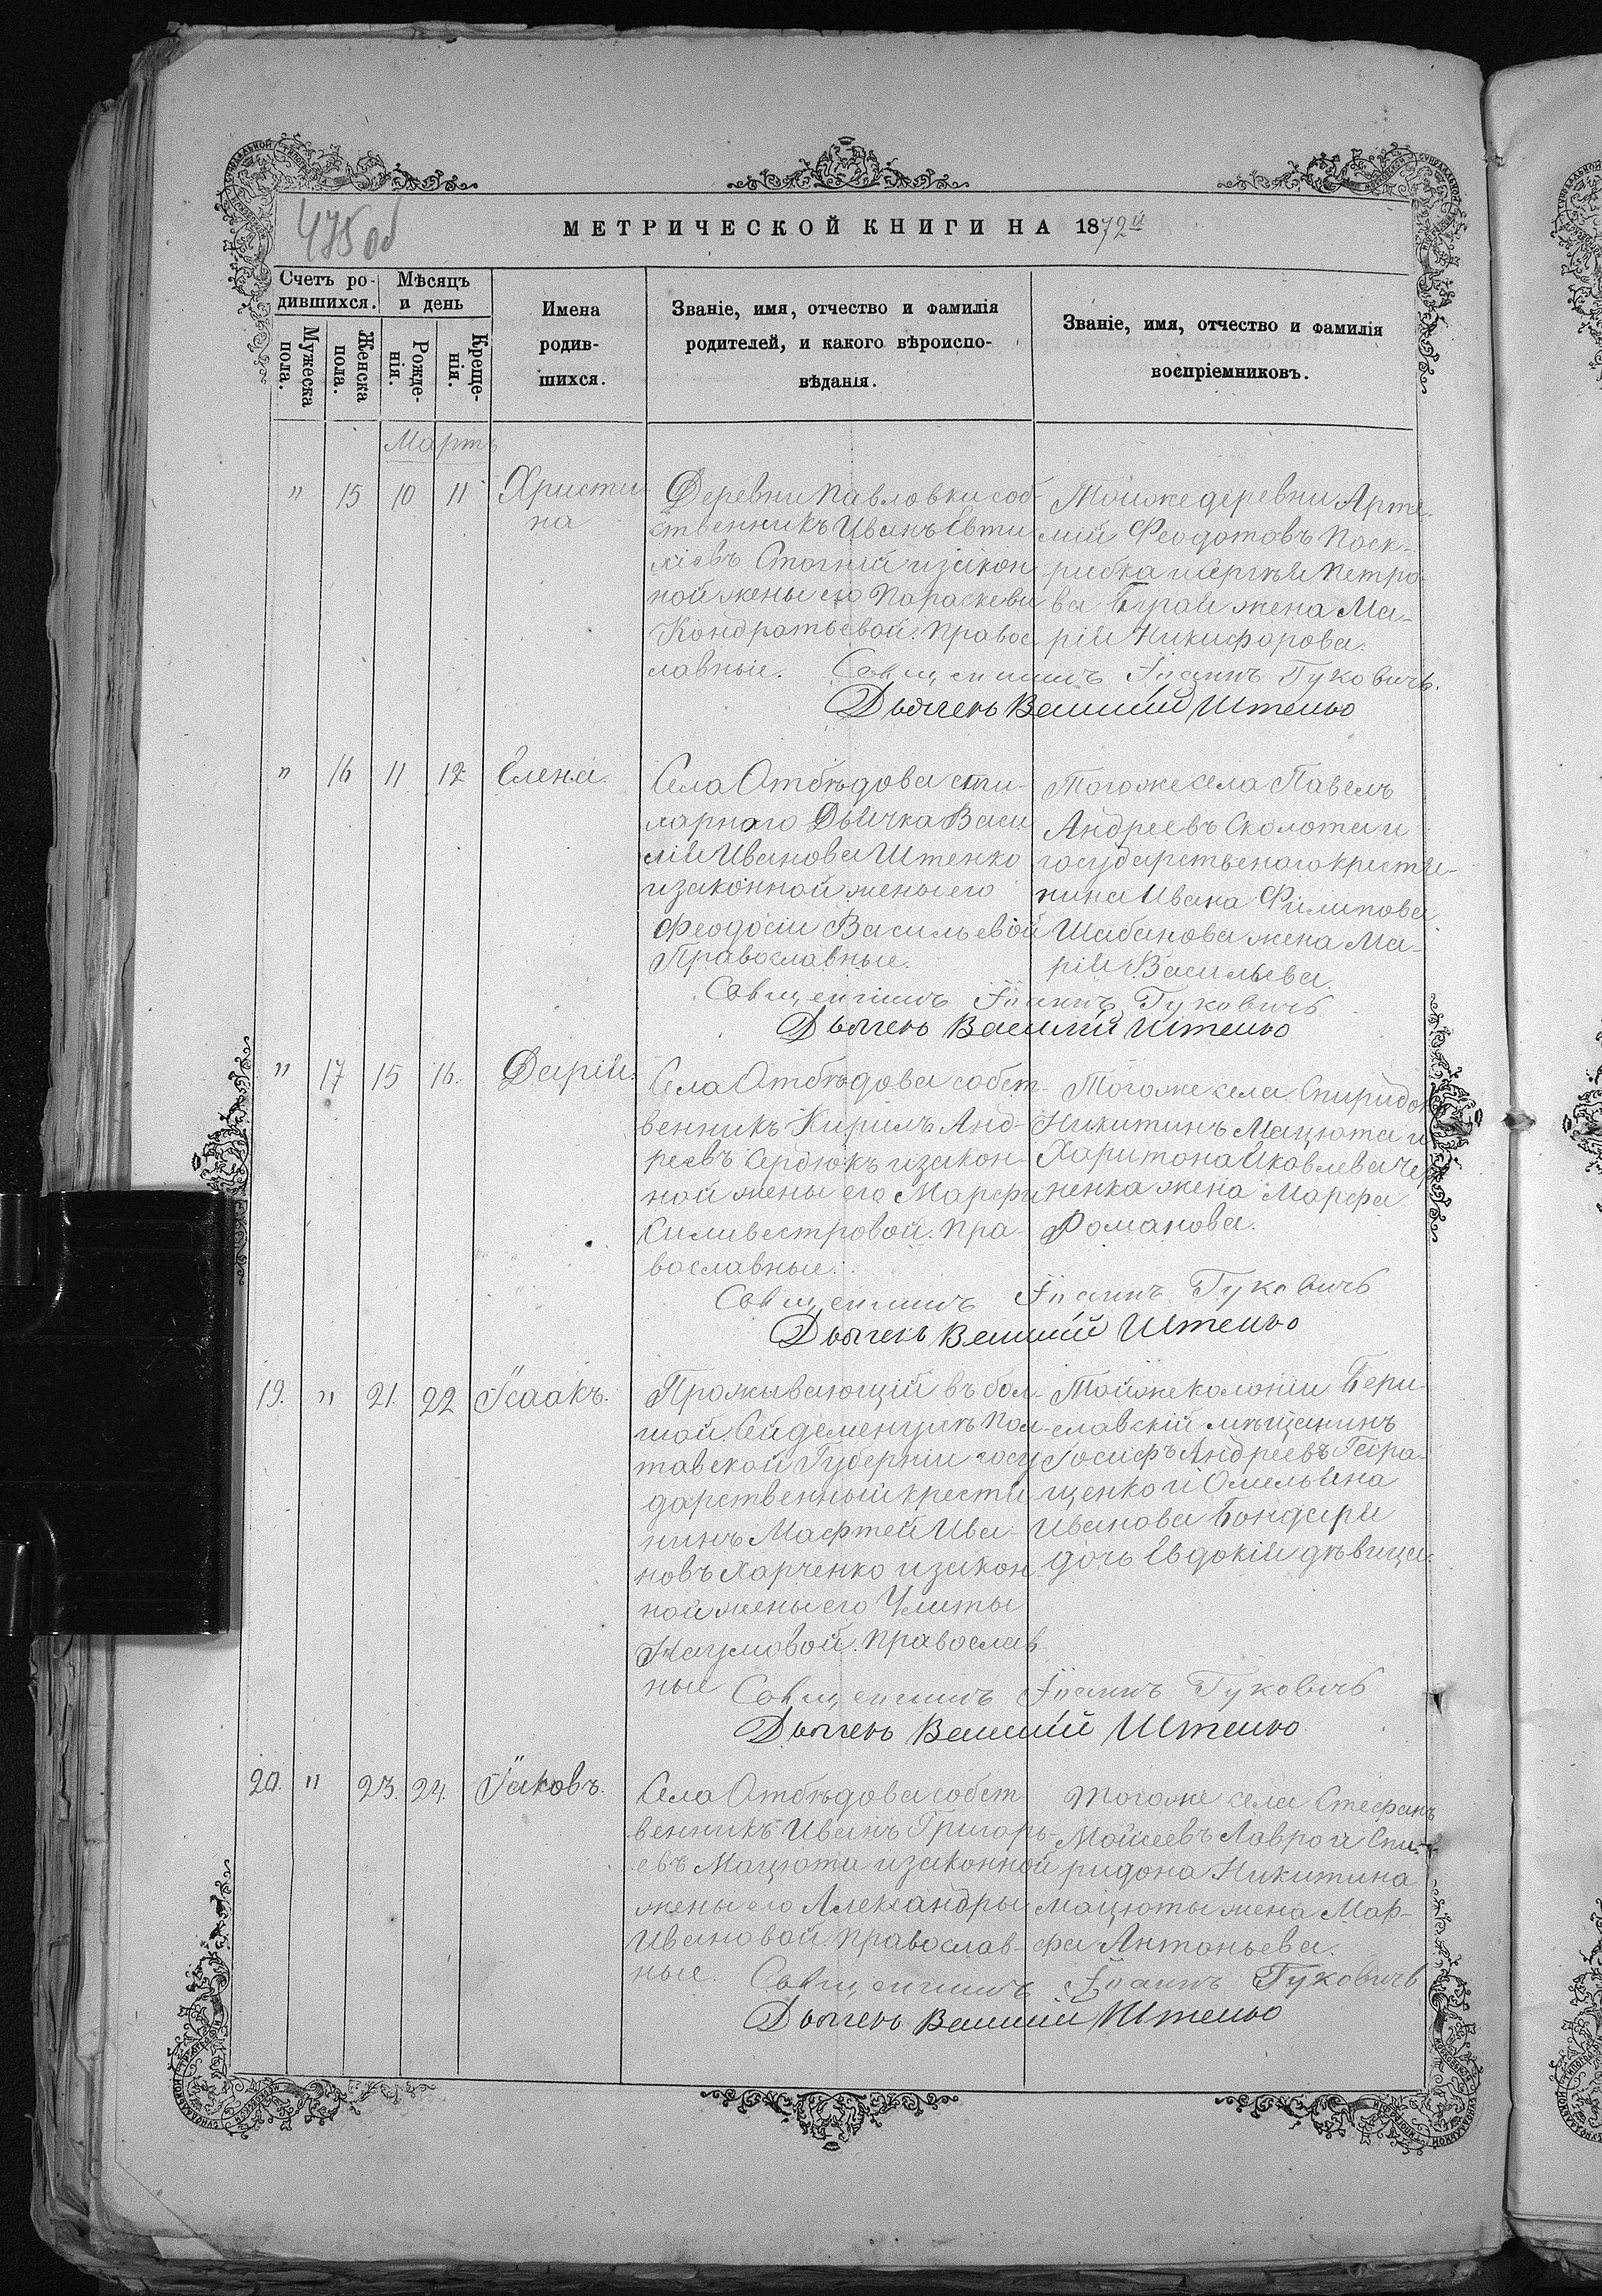 475 об
МЕТРИЧЕСКОЙ КНИГИ НА 1872й
Счетъ ро-
дившихся.
Мѣсяцъ
и день
Мужеска
пола.
Женска
пола.
Рожде-
нія.
Креще-
нія.
Имена
родив-
шихся.
Званіе, имя, отчество и фамилія
родителей, и какого вѣроиспо-
вѣданія.
Званіе, имя, отчество и фамилія
воспріемниковъ.
Мартъ
" 15 10 11 Христи
на
Деревни Павловки соб-
ственникъ Иванъ Евти
міевъ Стогній и закон
ной жены его Параскеви
Кондратьевой. Правос-
лавные.
Тойже деревни Арте-
мій Феодотовъ Поск-
рибка и Сергѣя Петро-
ва Бурай жена Ма-
рія Никифорова.
Священникъ Іоаннъ Гуковичъ.
Дьячекъ Василій Штенко
" 16 11 12 Елена.
Села Отбѣдова сти-
харнаго Дьячка Васи
лія Иванова Штенко
и законной жены его
Феодосіи Васильевой
Православные.
Тогоже села Павелъ
Андреевъ Сколота и
государственаго крестья-
нина Ивана Филипова
Шабанова жена Ма-
рія Васильева.
Священникъ Іоаннъ Гуковичъ
Дьячекъ Василій Штенко
" 17 15 16. Дарія.
Села Отбѣдова собст-
венникъ Кирилъ Анд-
реевъ Сердюкъ и закон-
ной жены его Марфы
Силивестровой. Пра-
вославные.
Тогоже села Спиридонъ
Никитинъ Мацюта и
Харитона Яковлева Чер
ненка жена Марфа
Романова.
Священникъ Іоаннъ Гуковичъ
Дьячекъ Василій Штенко
19. " 21. 22 Ісаакъ.
Проживающій въ бол-
шой Сейдеменухѣ Пол-
тавской Губерніи госу
дарственный крестья
нинъ Мафтей Ива-
новъ Харченко и закон
ной жены его Улиты
Наумовой. Православ
ные
Тойже колоніи Бери-
славскій мѣщанинъ
Іосифъ Андреевъ Гера-
щенко и Омельяна
Иванова Бондаря
дочь Евдокія дѣвица.
Священникъ Іоаннъ Гуковичъ
Дьячекъ Василій Штенко
20. " 23. 24. Іаковъ.
Села Отбѣдова собст
венникъ Иванъ Григорь-
евъ Мацюта и законной
жены его Александры
Ивановой. Православ-
ные.
Тогоже села Стефанъ
Мойсеевъ Лавро и Спи-
ридона Никитина
Мацюты жена Мар-
фа Антоньева.
Священникъ Іоаннъ Гуковичъ
Дьячекъ Василій Штенко